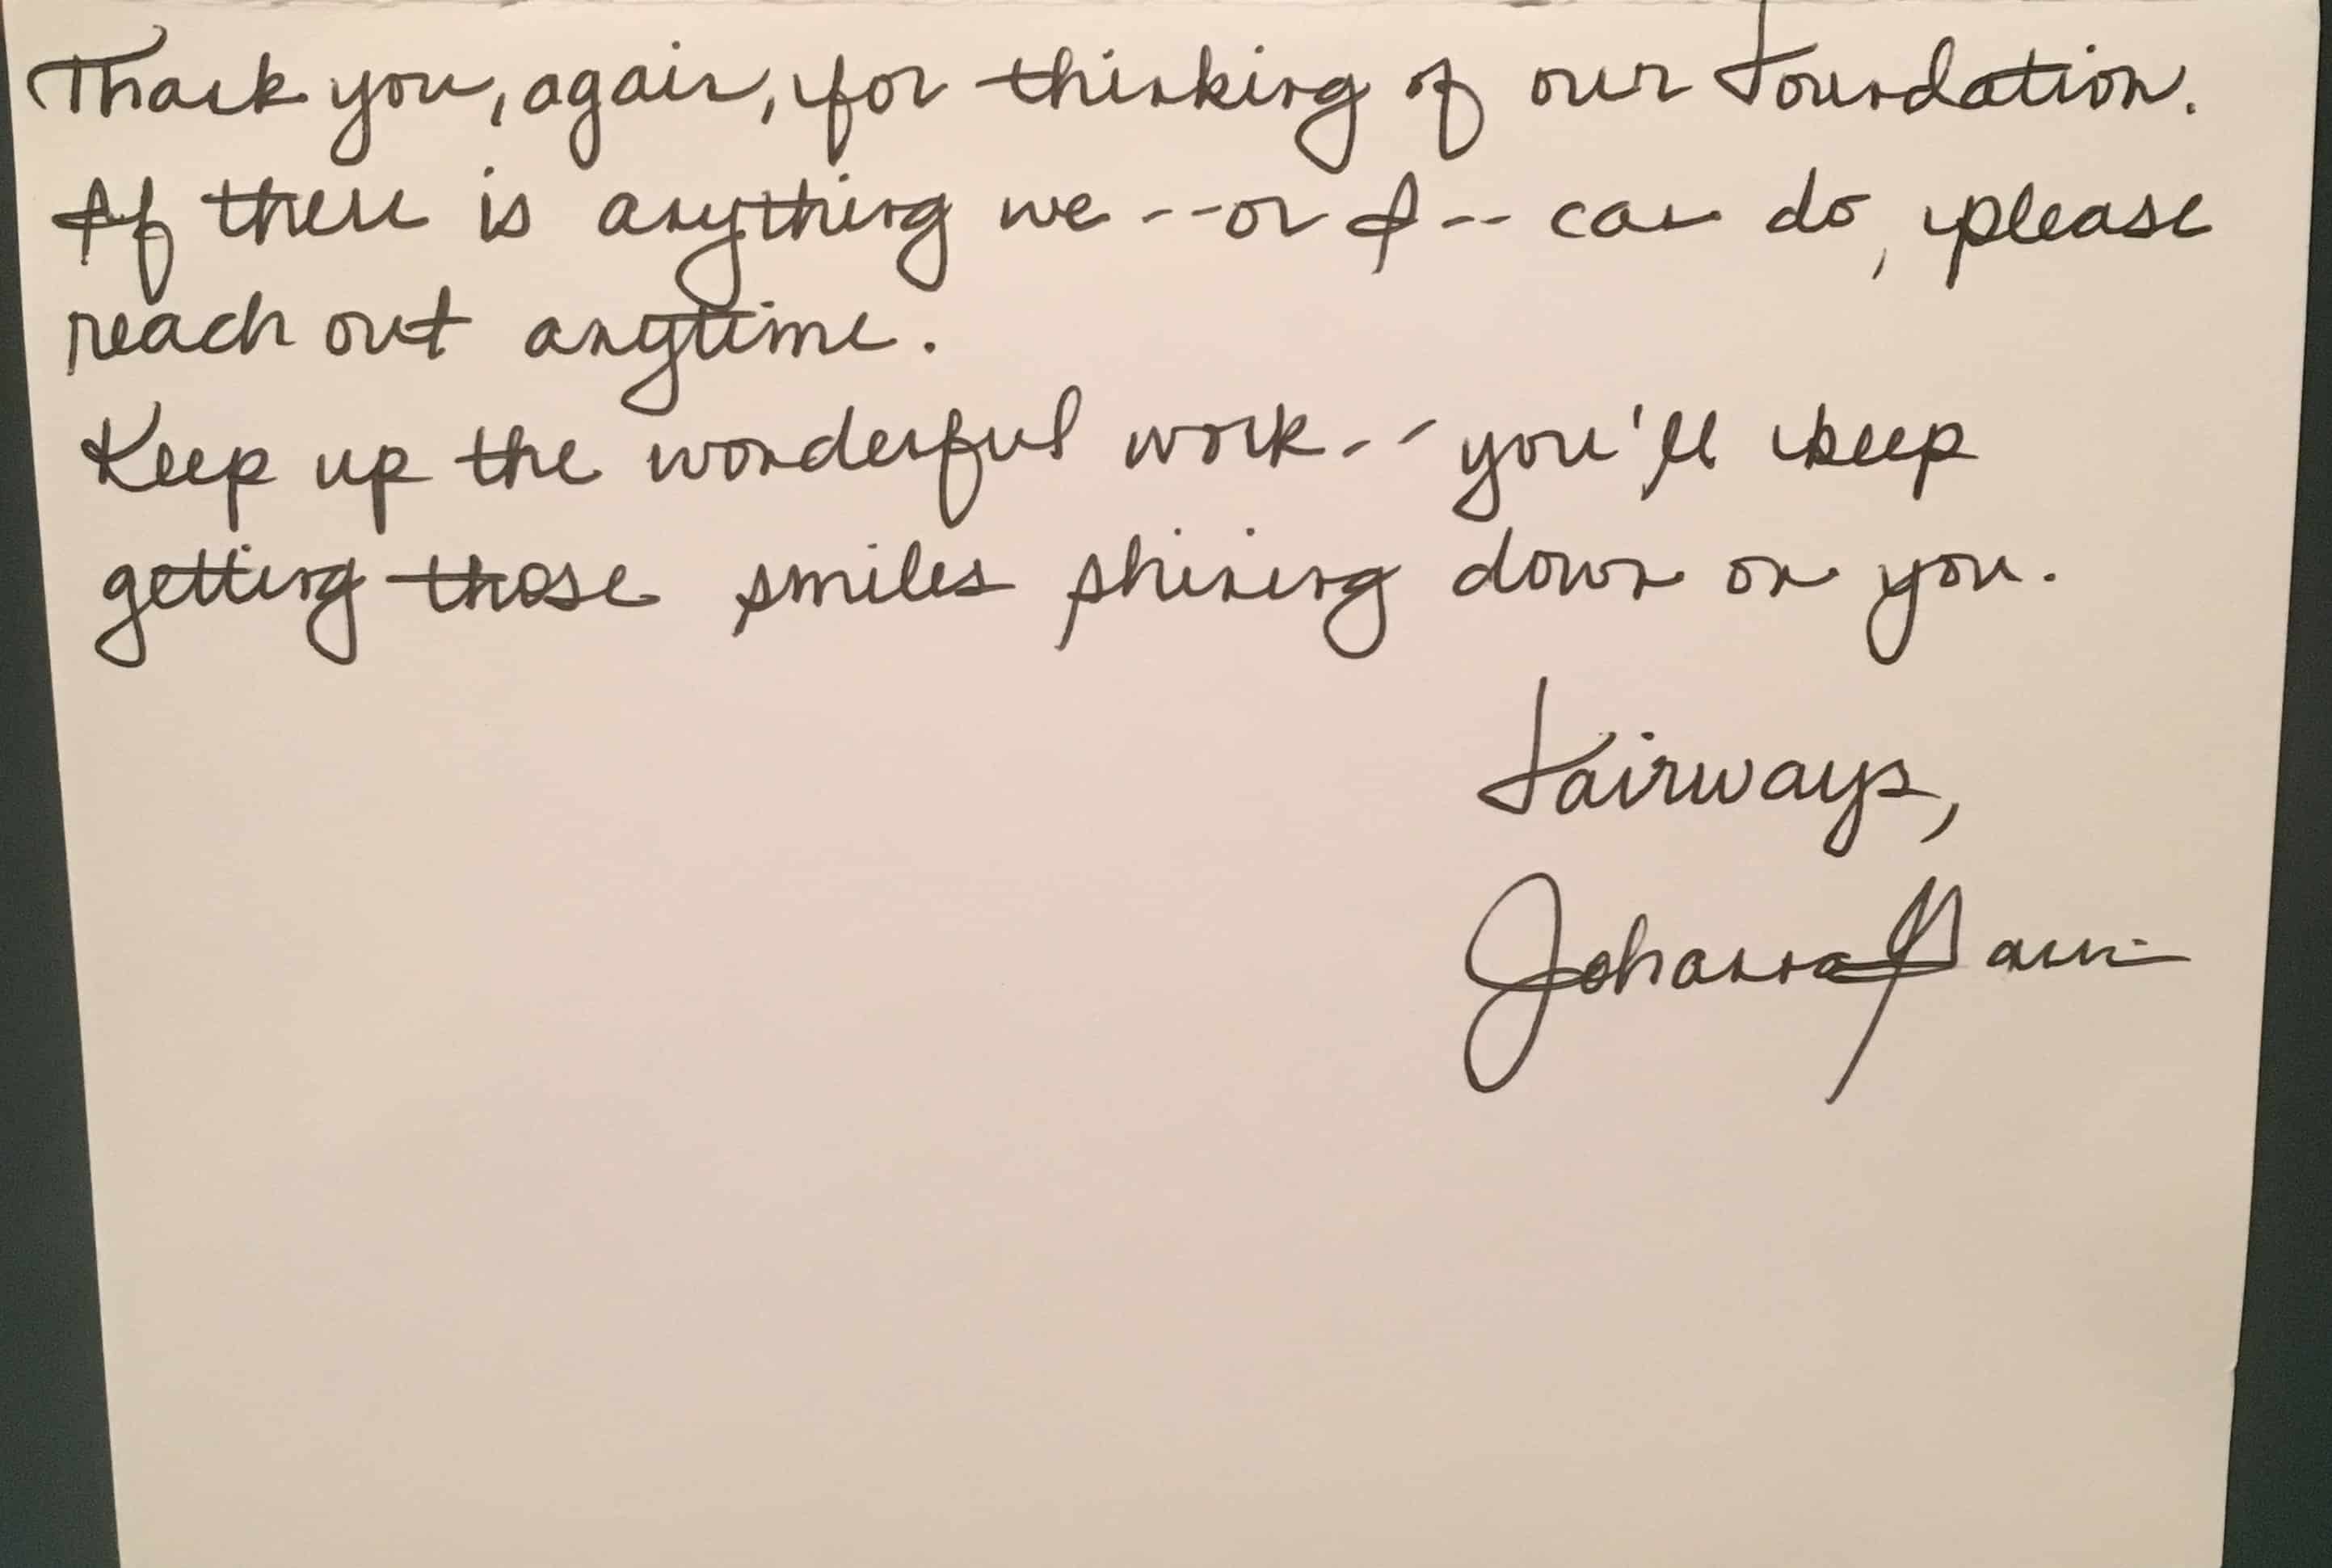 Thank you, again, for thinking of our Foundation.
If there is anything we -- or I -- can do, please
reach out anytime.
Keep up the wonderful work -- you'll keep
getting those smiles shining down on you.
Fairways,
Johanna